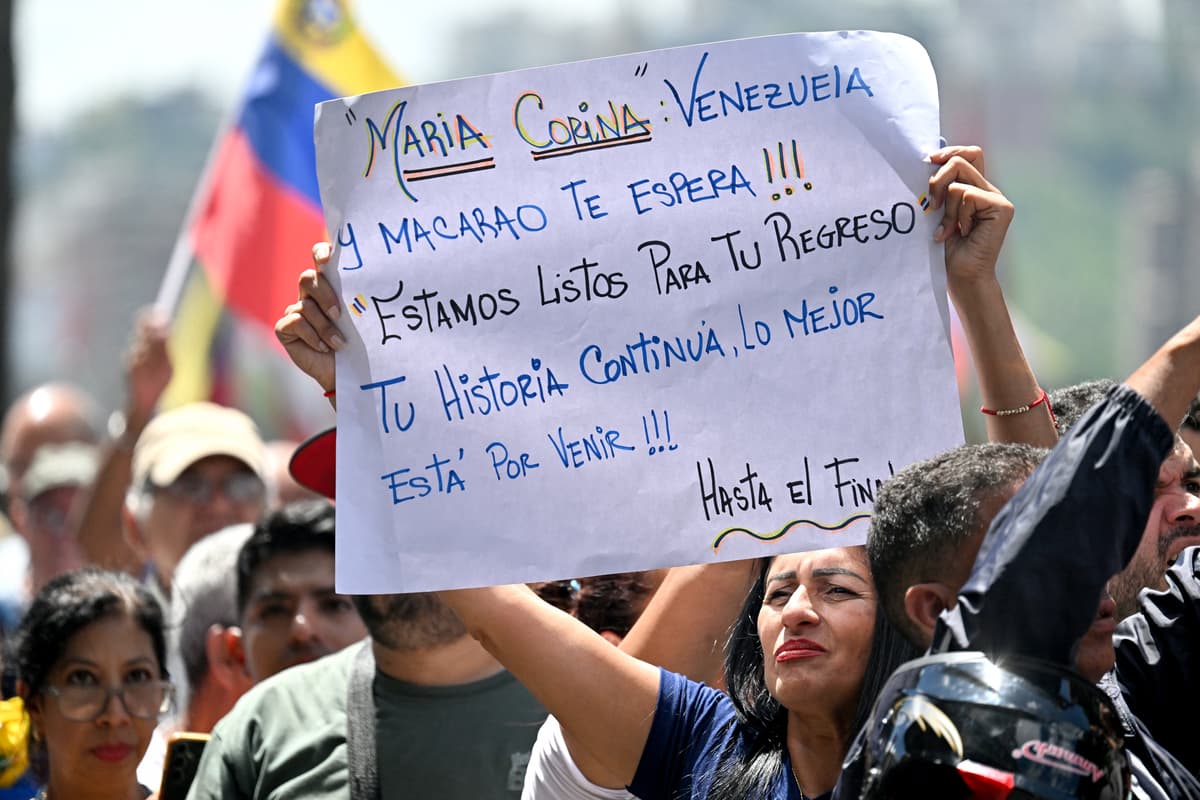 "MARIA CORINA": VENEZUELA
Y MACARAO TE ESPERA!!!
"ESTAMOS LISTOS PARA TU REGRESO"
TU HISTORIA CONTINUÁ, LO MEJOR
ESTÁ POR VENIR!!!
HASTA El FINAl